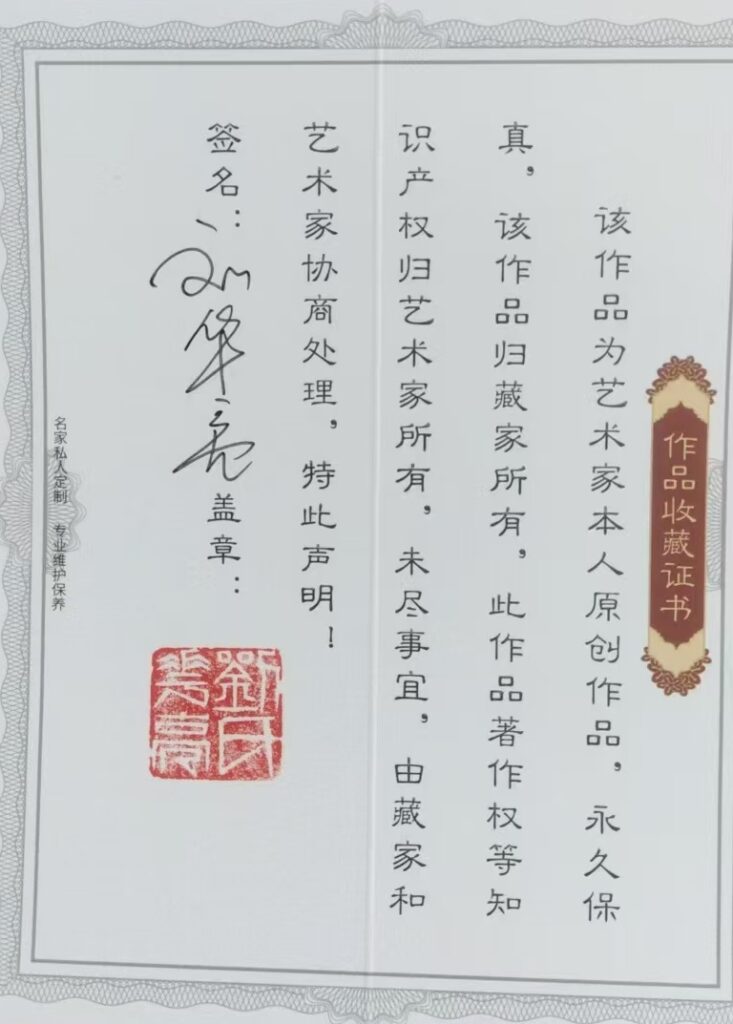 作品收藏证书
该作品为艺术家本人原创作品，永久保
真，该作品归藏家所有，此作品著作权等知
识产权归艺术家所有，未尽事宜，由藏家和
艺术家协商处理，特此声明！
签名：刘华亮盖章：
劉氏
华亮
名家私人定制 专业维护保养